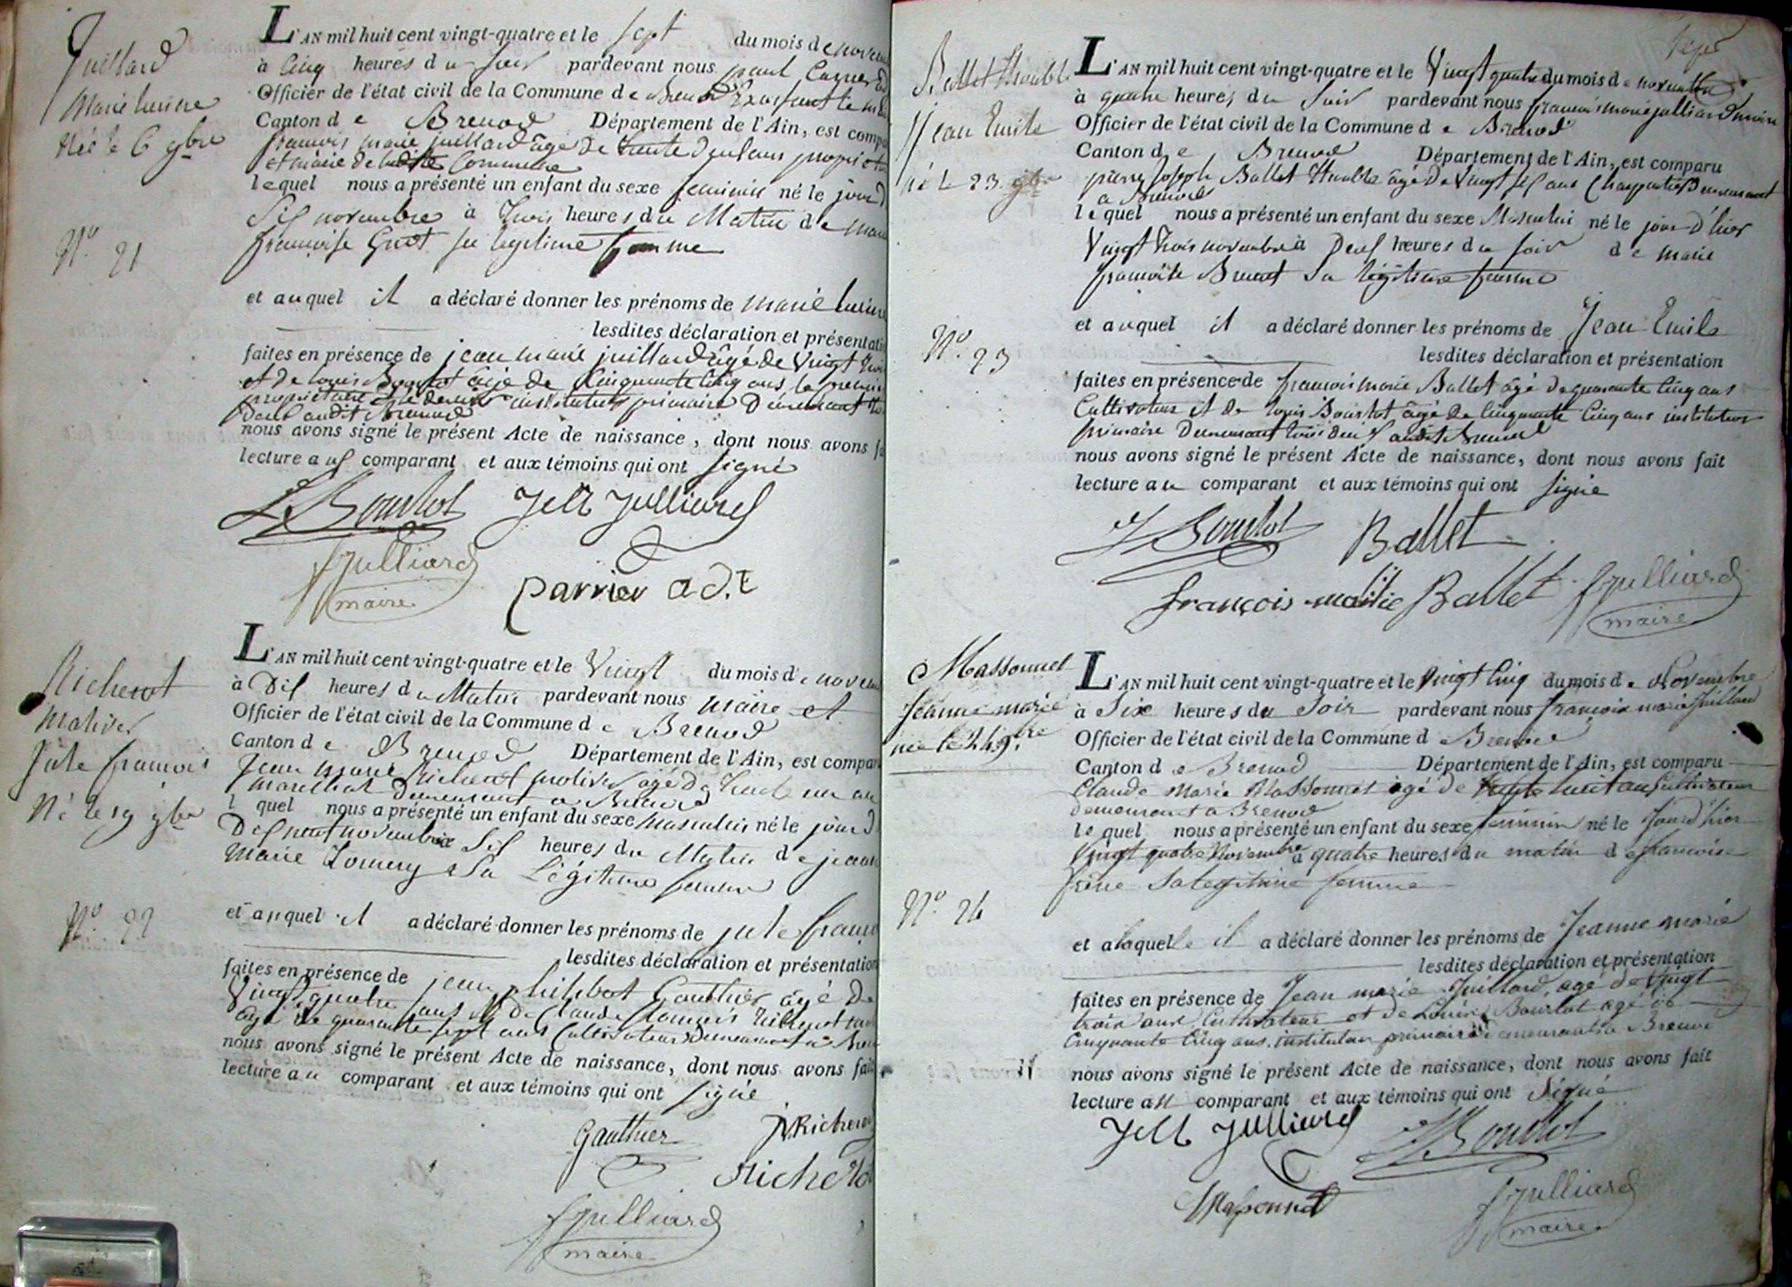 Juillard
Marie
Née le 6 9bre
N.o 21
L'AN mil huit cent vingt-quatre et le sept du mois de novem
à cinq heures du soir pardevant nous paul
Officier de l'état civil de la Commune de Brenod
Canton de Brenod Département de l'Ain, est compa
françois marie juillard âgé de trente propriet
et maire de ladite Commune
lequel nous a présenté un enfant du sexe feminin né le jour d
Six novembre à trois heures du Matin de marie
françoise sa légitime femme
et auquel il a déclaré donner les prénoms de marie
lesdites déclaration et présentati
faites en présence de jean marie juillard âgé de Vingt trois
et de louis Bourlot âgé de Cinquante Cinq ans le premier
propriétaire et le dernier instituteur primaire Demeurant
audit Brenod
nous avons signé le présent Acte de naissance, dont nous avons fa
lecture aux comparant et aux témoins qui ont signé
L Bourlot JeM Julliard
Julliard
maire
parrier adt
Richerot
Jule françois
Né le 19 9bre
N.o 22
L'AN mil huit cent vingt-quatre et le Vingt du mois de novem
à Dix heures du Matin pardevant nous maire et
Officier de l'état civil de la Commune de Brenod
Canton de Brenod Département de l'Ain, est compar
Jean marie Richerot âgé de trente un an
Demeurant a Brenod
lequel nous a présenté un enfant du sexe masculin né le jour d
Dix neuf novembre à Six heures du Matin de jeanne
Marie Sa Légitime femme
et auquel il a déclaré donner les prénoms de jule franço
lesdites déclaration et présentation
faites en présence de jean philibert Gauthier âgé de
Vingt quatre ans et De Claude françois Richerot
âgé de quarante sept ans Cultivateurs Demeurant a Bren
nous avons signé le présent Acte de naissance, dont nous avons fait
lecture au comparant et aux témoins qui ont signé
Gauthier Richero
Richerot
Julliard
maire
Ballet
Jean Emile
né le 23 9bre
N.o 23
L'AN mil huit cent vingt-quatre et le Vingt quatre du mois de novembre
à quatre heures du Soir pardevant nous françois marie juilliard maire
Officier de l'état civil de la Commune de Brenod
Canton de Brenod Département de l'Ain, est comparu
pierre joseph Ballet âgé de Vingt Six ans Charpentier Demeurant
a Brenod
lequel nous a présenté un enfant du sexe Masculin né le jour d'hier
Vingt trois novembre à Deux heures du soir de marie
françoise Brunet Sa légitime femme
et auquel il a déclaré donner les prénoms de Jean Emile
lesdites déclaration et présentation
faites en présence de françois marie Ballet âgé de quarante Cinq ans
Cultivateur et de louis Bourlot âgé de Cinquante Cinq ans instituteur
primaire Demeurant audit Brenod
nous avons signé le présent Acte de naissance, dont nous avons fait
lecture au comparant et aux témoins qui ont signé
L Bourlot Ballet
françois marie Ballet Julliard
maire
Massonnet
Jeanne marie
née le 24 9bre
N.o 24
L'AN mil huit cent vingt-quatre et le Vingt Cinq du mois de Novembre
à Six heures du Soir pardevant nous françois marie Juillard
Officier de l'état civil de la Commune de Brenod
Canton de Brenod Département de l'Ain, est comparu
Claude Marie Massonnet âgé de trente huit ans Cultivateur
demeurant a Brenod
lequel nous a présenté un enfant du sexe féminin né le Jour d'hier
Vingt quatre Novembre à quatre heures du matin de françoise
Sa légitime femme
et à laquelle il a déclaré donner les prénoms de Jeanne marie
lesdites déclaration et présentation
faites en présence de Jean marie Juillard, agé de Vingt
trois ans Cultivateur et de Louis Bourlot agé de
Cinquante Cinq ans, instituteur primaire demeurant a Brenod
nous avons signé le présent Acte de naissance, dont nous avons fait
lecture au comparant et aux témoins qui ont Signé
JeM Julliard L Bourlot
Massonnet
Julliard
maire